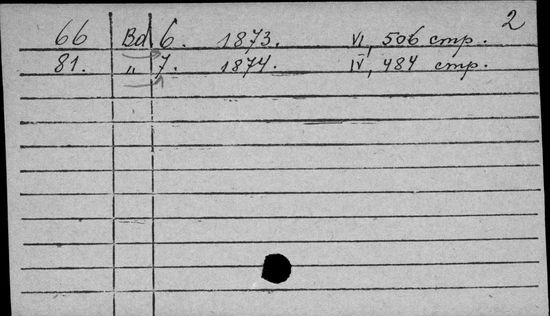 2
66 Bd 6. 1873. VI, 506 стр.
81. " 7. 1874. IV, 484 стр.